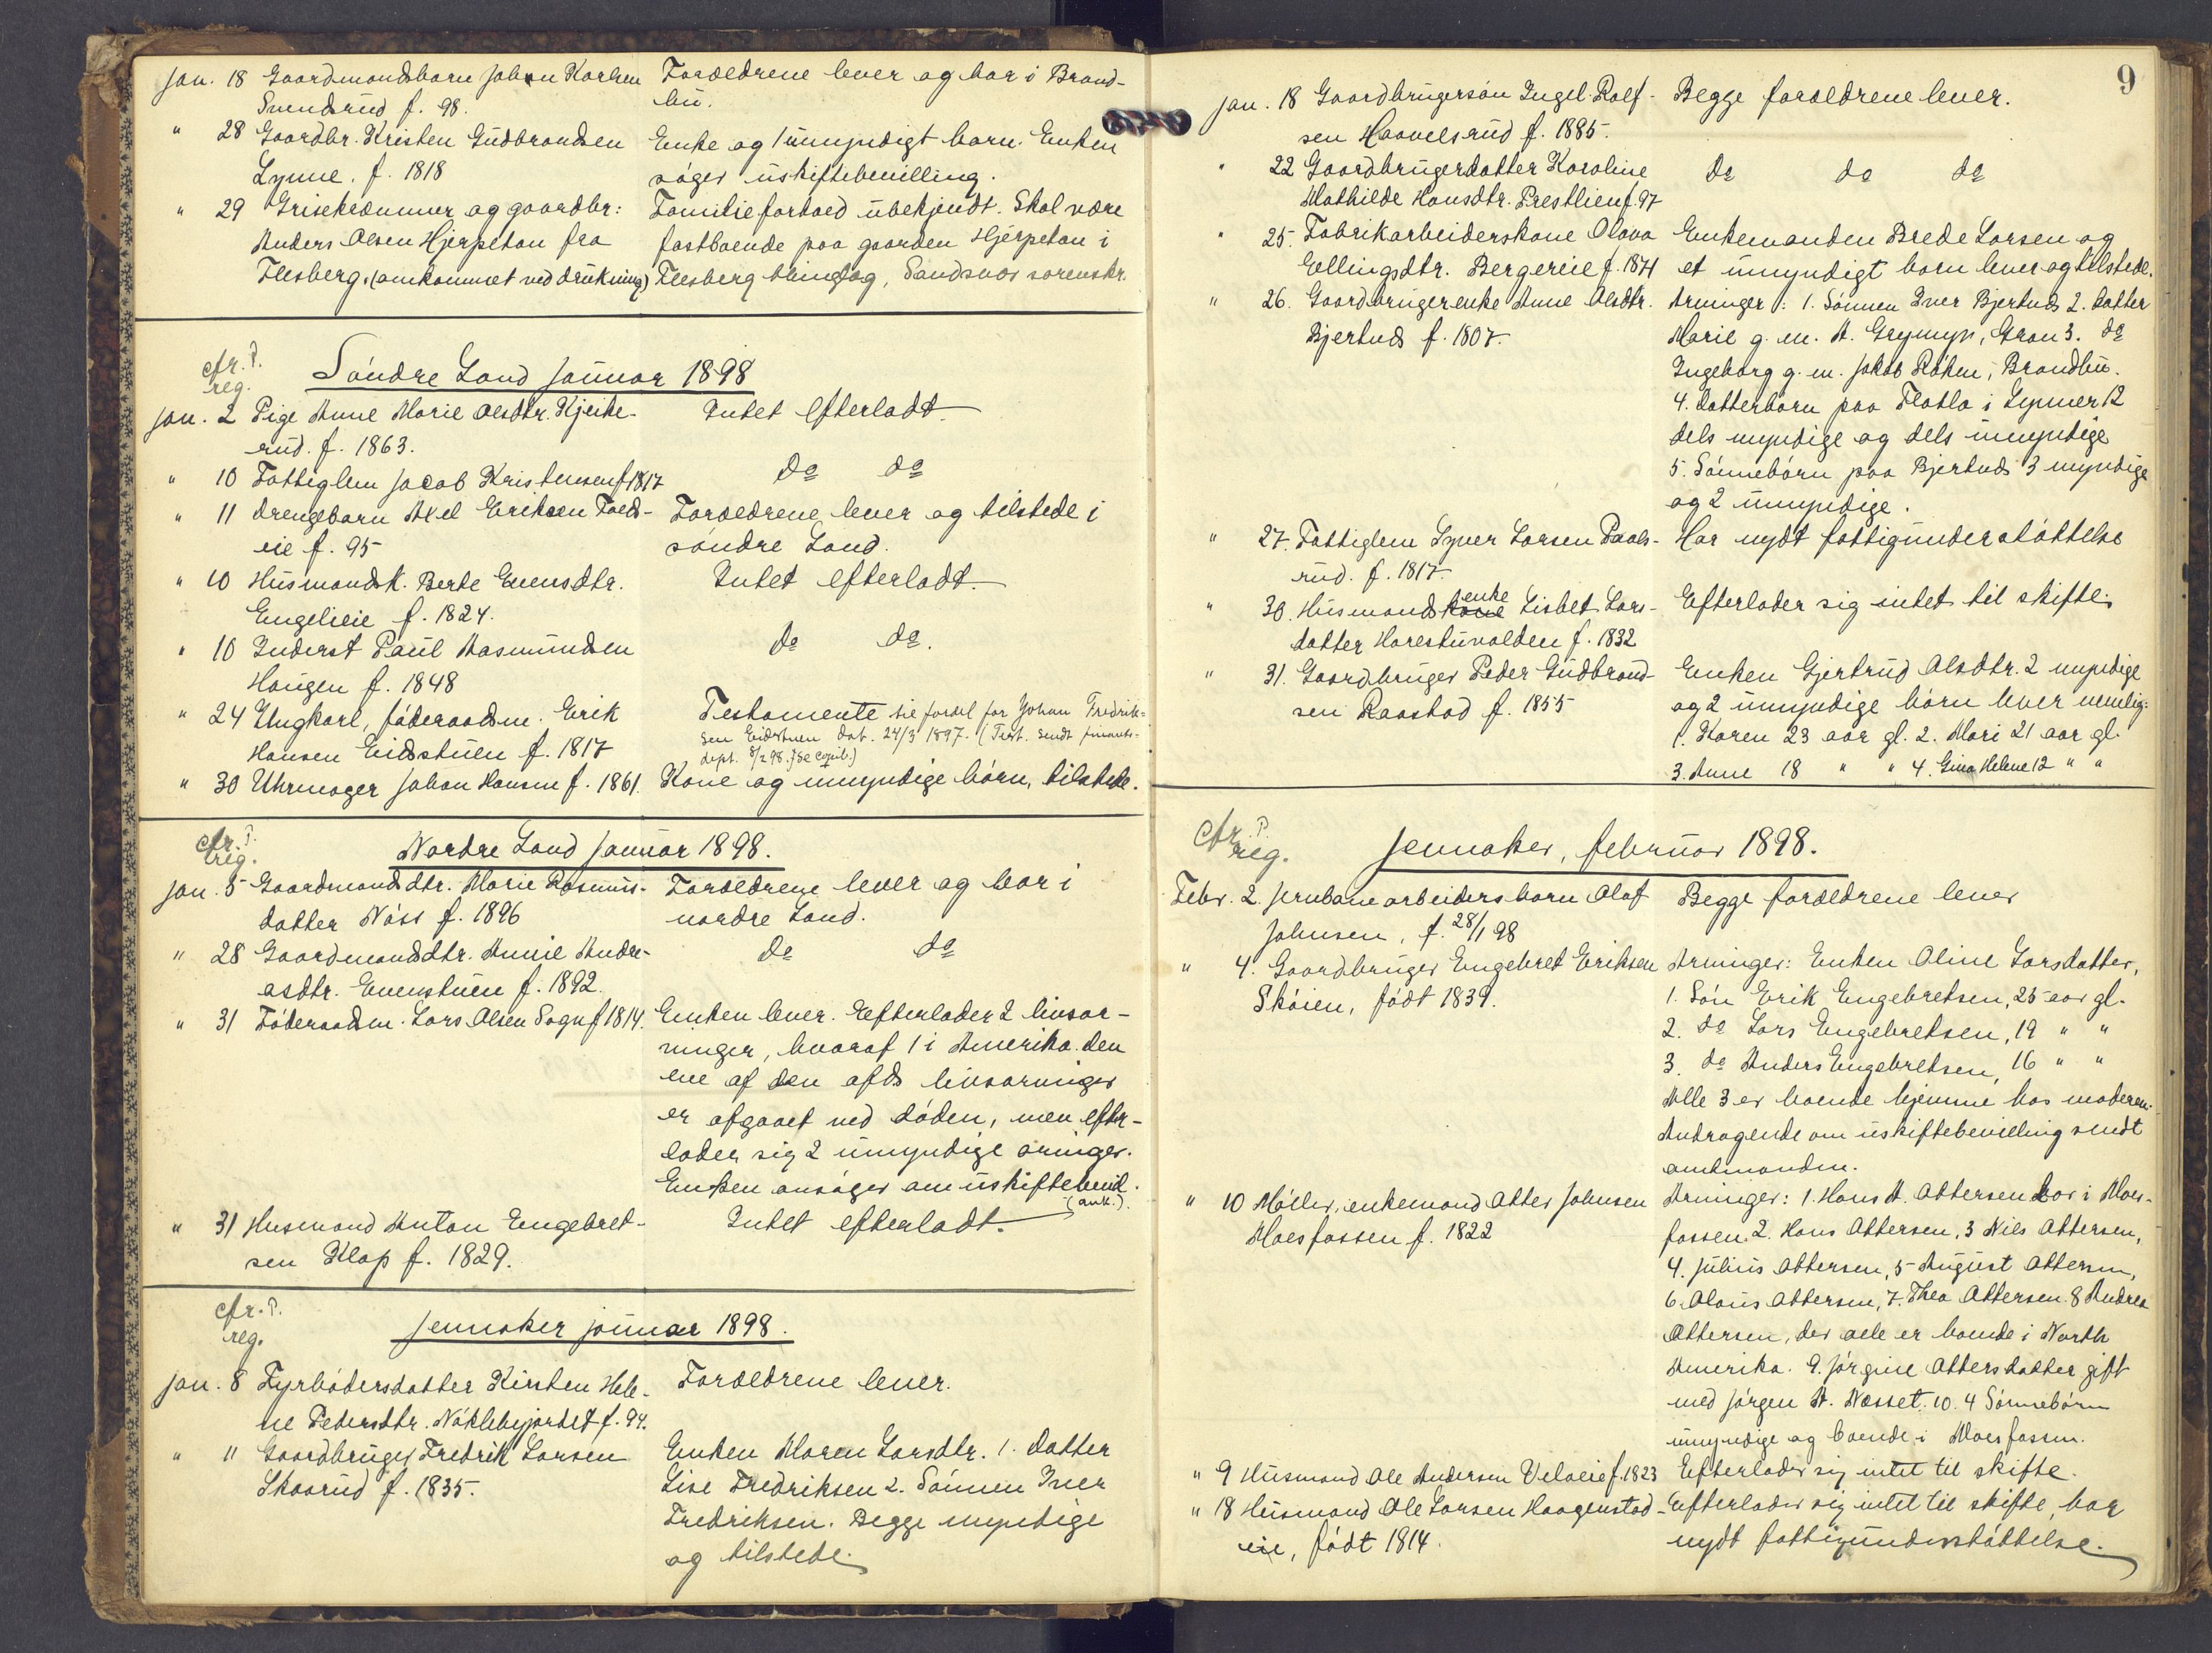 Jan. 18 Gaardmandsbarn Johan Karlsen Forældrene lever og bor i Brand-
Svendsrud f. 98. bu.
" 28 Gaardbr. Kristen Gudbrandsen Enke og 1 umyndigt barn. Enken
Lynne. f. 1818 søger uskiftebevilling.
" 29 Grisekræmmer og gaardbr: Familieforhold ubekjendt. Skal være
Anders Olsen Hjerpetan fra fastboende paa gaarden Hjerpetan i
Flesberg. (omkommet ved drukning) Flesberg thinglag, Sandsvær sorenskr.
cfr. P.
reg. Søndre Land januar 1898
Jan. 2 Pige Anne Marie Olsdtr. Kjeike- Intet efterladt.
rud. f. 1863.
" 10 Fattiglem Jacob Kristensen f 1817 do do
" 11 Drengebarn Axel Eriksen Foeds- Forældrene lever og tilstede i
eie f. 95 søndre Land.
" 10 Husmandsk. Berte Evensdtr. Intet efterladt.
Engelieie f. 1824.
" 10 Inderst Paul Rasmundsen do do.
Haugen f. 1848
" 24 Ungkarl, føderaadsm. Erik Testamente til fordel for Johan Fredrik-
Hansen Eidstuen f. 1817 sen Eidstuen dat. 24/3 1897. (Test. sendt finants-
dept. 8/2 98. Se copib.)
" 30 Uhrmager Johan Hansen f. 1861. Kone og umyndige børn, tilstede.
cfr. P.
reg. Nordre Land januar 1898.
Jan. 5 Gaardmandsdtr. Marie Rasmus- Forældrene lever og bor i
datter Nøss f. 1896 nordre Land.
" 28 Gaardmandsdtr. Annie Andre- do do
asdtr. Evenstuen f. 1892.
" 31 Føderaadsm. Lars Olsen Sogn f 1814. Enken lever. Efterlader 2 livsar-
vinger, hvoraf 1 i Amerika. den
ene af den afds livsarvinger
er afgaaet ved døden, men efter-
lader sig 2 umyndige arvinger.
Enken ansøger om uskiftebevil.
(ank.).
" 31 Husmand Anton Engebret- Intet efterladt.
sen Klop f. 1829.
cfr. P.
reg. Jevnaker januar 1898.
Jan. 8 Fyrbødersdatter Kirsten Hele- Forældrene lever.
ne Pedersdtr. Nøklebyjordet f. 94.
" 11 Gaardbruger Fredrik Larsen Enken Maren Larsdtr. 1. Datter
Skaarud f. 1835. Lise Fredriksen 2. Sønnen Iver
Fredriksen. Begge myndige
og tilstede.
9
Jan. 18 Gaardbrugersøn Ingel Rolf- Begge forældrene lever.
sen Haavelsrud f. 1885.
" 22 Gaardbrugerdatter Karoline do do do
Mathilde Hansdtr. Prestlien f. 97
" 25. Fabrikarbeiderskone Olava Enkemanden Brede Larsen og
Ellingsdtr. Bergereie f. 1871 et umyndigt barn lever og tilstede.
" 26. Gaardbrugerenke Anne Olsdtr. Arvinger: 1. Sønnen Iver Bjertnes 2. datter
Bjertnes f. 1807. Marie g. m. A. Grymyr, Gran 3. do
Ingeborg g. m. Jakob Røken, Brandbu.
4. datterbørn paa Flatla i Lynner 12
dels myndige og dels umyndige
5. Sønnebørn paa Bjertnes 3 myndige
og 2 umyndige.
" 27. Fattiglem Syver Larsen Paals- Har nydt fattigunderstøttelse
rud. f. 1817.
" 30. Husmandskone enke Lisbet Lars- Efterlader sig intet til skifte.
datter Harestuvolden f. 1832
" 31. Gaardbruger Peder Gudbrand- Enken Gjertrud Olsdtr. 2 myndige
sen Raastad f. 1855 og 2 umyndige børn lever nemlig:
1. Karen 23 aar gl. 2. Mari 21 aar gl.
3. Anne 18 " " 4. Gina Helene 12 " "
cfr. P.
reg. Jevnaker, februar 1898.
Febr. 2. Jernbanearbeidersbarn Olaf Begge forældrene lever
Johnsen, f. 28/1 98
" 4. Gaardbruger Engebret Eriksen Arvinger: Enken Oline Larsdatter,
Skøien, født 1839. 1. Søn Erik Engebretsen, 25 aar gl.
2. do Lars Engebretsen, 19 " "
3. do Anders Engebretsen, 16 " "
Alle 3 er boende hjemme hos moderen.
Andragende om uskiftebevilling sendt
amtmanden.
" 10 Møller, enkemand Otter Johnsen Arvinger: 1. Hans A. Ottersen bor i Moes-
Moesfossen f. 1822 fossen. 2. Hans Ottersen, 3 Nils Ottersen,
4. Julius Ottersen, 5 August Ottersen,
6. Olaus Ottersen, 7. Thea Ottersen. 8 Andrea
Ottersen, der alle er boende i North
Amerika. 9. Jørgine Ottersdatter gift
med Jørgen A. Næsset. 10. 4 Sønnebørn
umyndige og boende i Moesfossen.
" 9 Husmand Ole Andersen Veloeie f. 1823 Efterlader sig intet til skifte.
" 18 Husmand Ole Larsen Haagenstad- Efterlader sig intet til skifte, har
eie, født 1814. nydt fattigunderstøttelse.